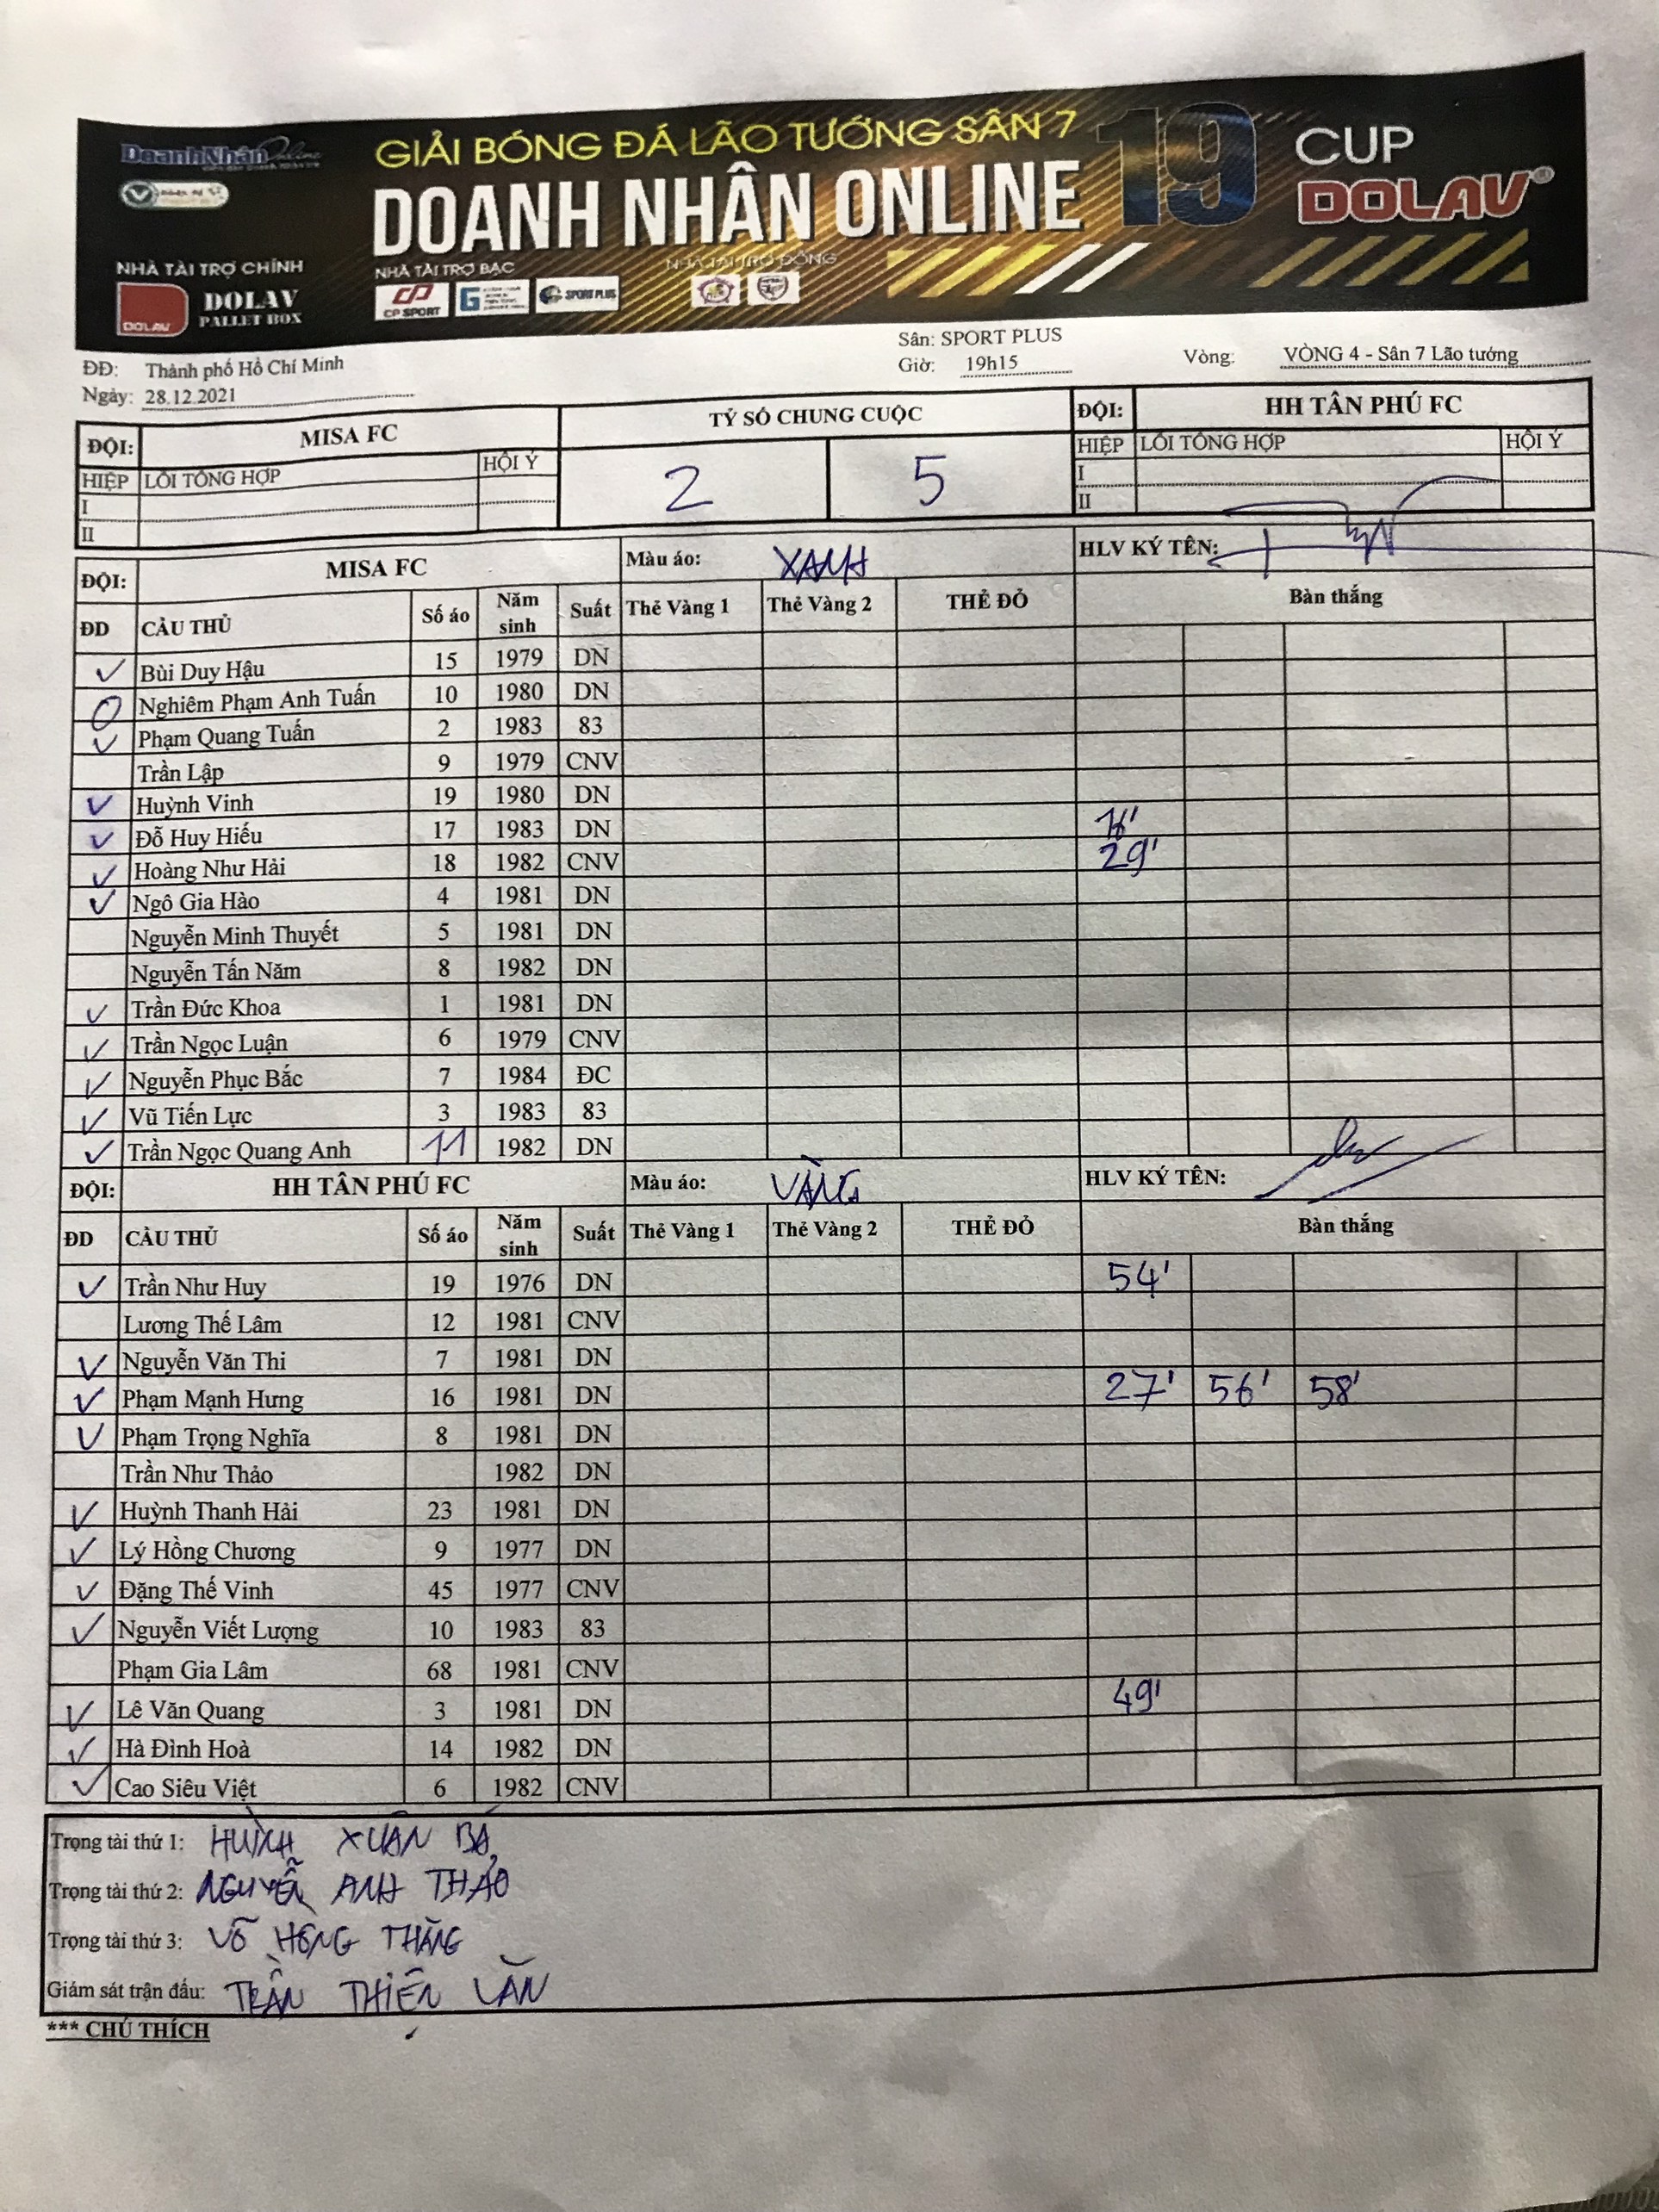 DoanhNhân Online
GIẢI BÓNG ĐÁ LÃO TƯỚNG SÂN 7
DOANH NHÂN ONLINE 19
CUP
DOLAV®
NHÀ TÀI TRỢ CHÍNH
DOLAV
DOLAV
PALLET BOX
NHÀ TÀI TRỢ BẠC
CP SPORT
SPORT PLUS
NHÀ TÀI TRỢ ĐỒNG
ĐĐ: Thành phố Hồ Chí Minh
Sân: SPORT PLUS
Ngày: 28.12.2021
Giờ: 19h15
Vòng: VÒNG 4 - Sân 7 Lão tướng
ĐỘI: MISA FC TỶ SỐ CHUNG CUỘC ĐỘI: HH TÂN PHÚ FC
HIỆP LỖI TỔNG HỢP HỘI Ý 2 5 HIỆP LỖI TỔNG HỢP HỘI Ý
I I
II II
ĐỘI: MISA FC Màu áo: XANH HLV KÝ TÊN:
ĐD CẦU THỦ Số áo Năm sinh Suất Thẻ Vàng 1 Thẻ Vàng 2 THẺ ĐỎ Bàn thắng
Bùi Duy Hậu 15 1979 DN
Nghiêm Phạm Anh Tuấn 10 1980 DN
Phạm Quang Tuấn 2 1983 83
Trần Lập 9 1979 CNV
Huỳnh Vinh 19 1980 DN
Đỗ Huy Hiếu 17 1983 DN 16'
Hoàng Như Hải 18 1982 CNV 29'
Ngô Gia Hào 4 1981 DN
Nguyễn Minh Thuyết 5 1981 DN
Nguyễn Tấn Năm 8 1982 DN
Trần Đức Khoa 1 1981 DN
Trần Ngọc Luận 6 1979 CNV
Nguyễn Phục Bắc 7 1984 ĐC
Vũ Tiến Lực 3 1983 83
Trần Ngọc Quang Anh 11 1982 DN
ĐỘI: HH TÂN PHÚ FC Màu áo: VÀNG HLV KÝ TÊN:
ĐD CẦU THỦ Số áo Năm sinh Suất Thẻ Vàng 1 Thẻ Vàng 2 THẺ ĐỎ Bàn thắng
Trần Như Huy 19 1976 DN 54'
Lương Thế Lâm 12 1981 CNV
Nguyễn Văn Thi 7 1981 DN
Phạm Mạnh Hưng 16 1981 DN 27' 56' 58'
Phạm Trọng Nghĩa 8 1981 DN
Trần Như Thảo 1982 DN
Huỳnh Thanh Hải 23 1981 DN
Lý Hồng Chương 9 1977 DN
Đặng Thế Vinh 45 1977 CNV
Nguyễn Viết Lượng 10 1983 83
Phạm Gia Lâm 68 1981 CNV
Lê Văn Quang 3 1981 DN 49'
Hà Đình Hoà 14 1982 DN
Cao Siêu Việt 6 1982 CNV
Trọng tài thứ 1: HUỲNH XUÂN BÁ
Trọng tài thứ 2: NGUYỄN ANH THẢO
Trọng tài thứ 3: VÕ HỒNG THẮNG
Giám sát trận đấu: TRẦN THIÊN VĂN
*** CHÚ THÍCH